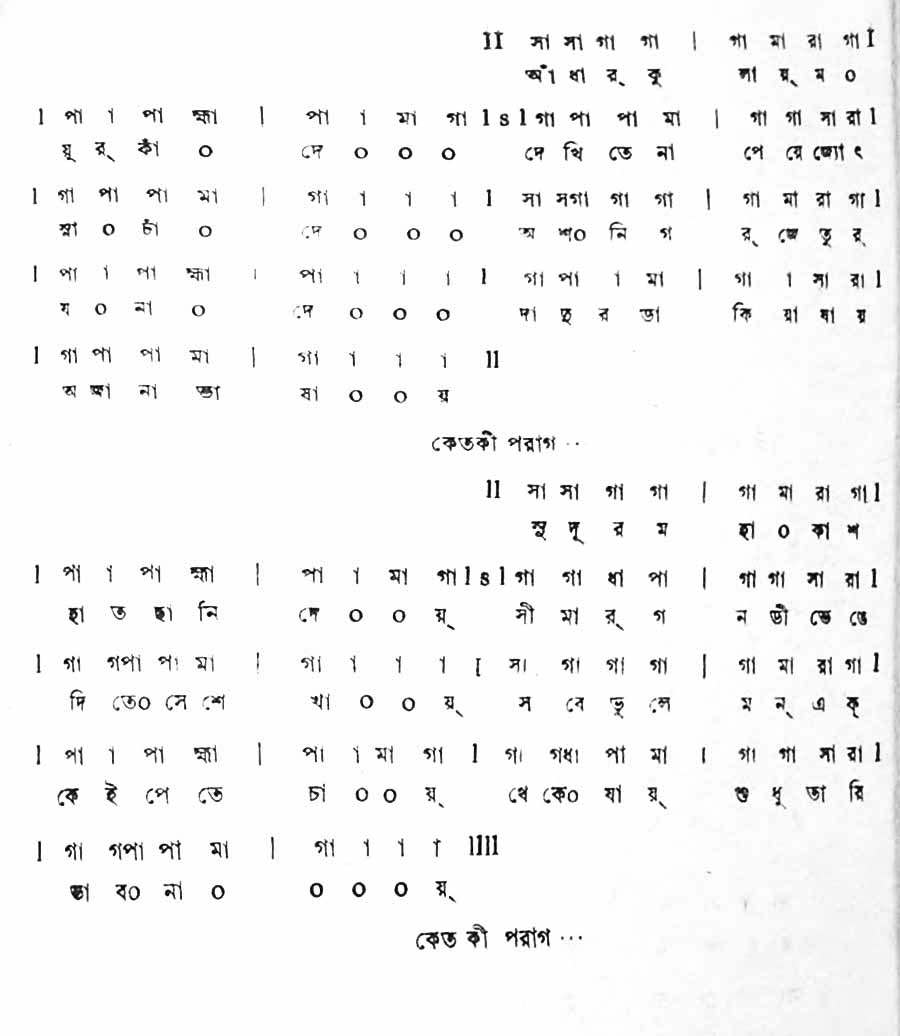 II সা সা গা গা | গা মা রা গা I
আঁ ধা র্ কু লা য়্ ম ০
l পা া পা হ্মা | পা া মা গা l s l গা পা পা মা | গা গা সা রা l
য়ূ র্ কাঁ ০ দে ০ ০ ০ দে খি তে না পে য়ে জ্যোৎ
l গা পা পা মা | গা া া া l সা সগা গা গা | গা মা রা গা l
স্না ০ চাঁ ০ দে ০ ০ ০ অ শ০ নি গ র্ জে তূ র্
l পা া পা হ্মা । পা া া া l গা পা া মা | গা া সা রা l
য ০ না ০ দে ০ ০ ০ দা দু র ডা কি য়া যা য়
l গা পা পা মা | গা া া া ll
অ জা না ভা ষা ০ ০ য়
কেতকী পরাগ ···
ll সা সা গা গা | গা মা রা গা l
সু দূ র ম হা ০ কা শ
l পা া পা হ্মা | পা া মা গা l s l গা গা ধা পা | গা গা সা রা l
হা ত ছা নি দে ০ ০ য়্ সী মা র্ গ ন ডী ভে ঙে
l গা গপা পা মা | গা া া া [ সা গা গা গা | গা মা রা গা l
দি তে০ সে শে খা ০ ০ য়্ স বে ভু লে ম ন্ এ ক্
l পা া পা হ্মা | পা া মা গা l গা গধা পা মা । গা গা সা রা l
কে ই পে তে চা ০ ০ য়্ থে কে০ যা য়্ শু ধু তা রি
l গা গপা পা মা | গা া া া llll
ভা ব০ না ০ ০ ০ ০ য়্
কেত কী পরাগ ···